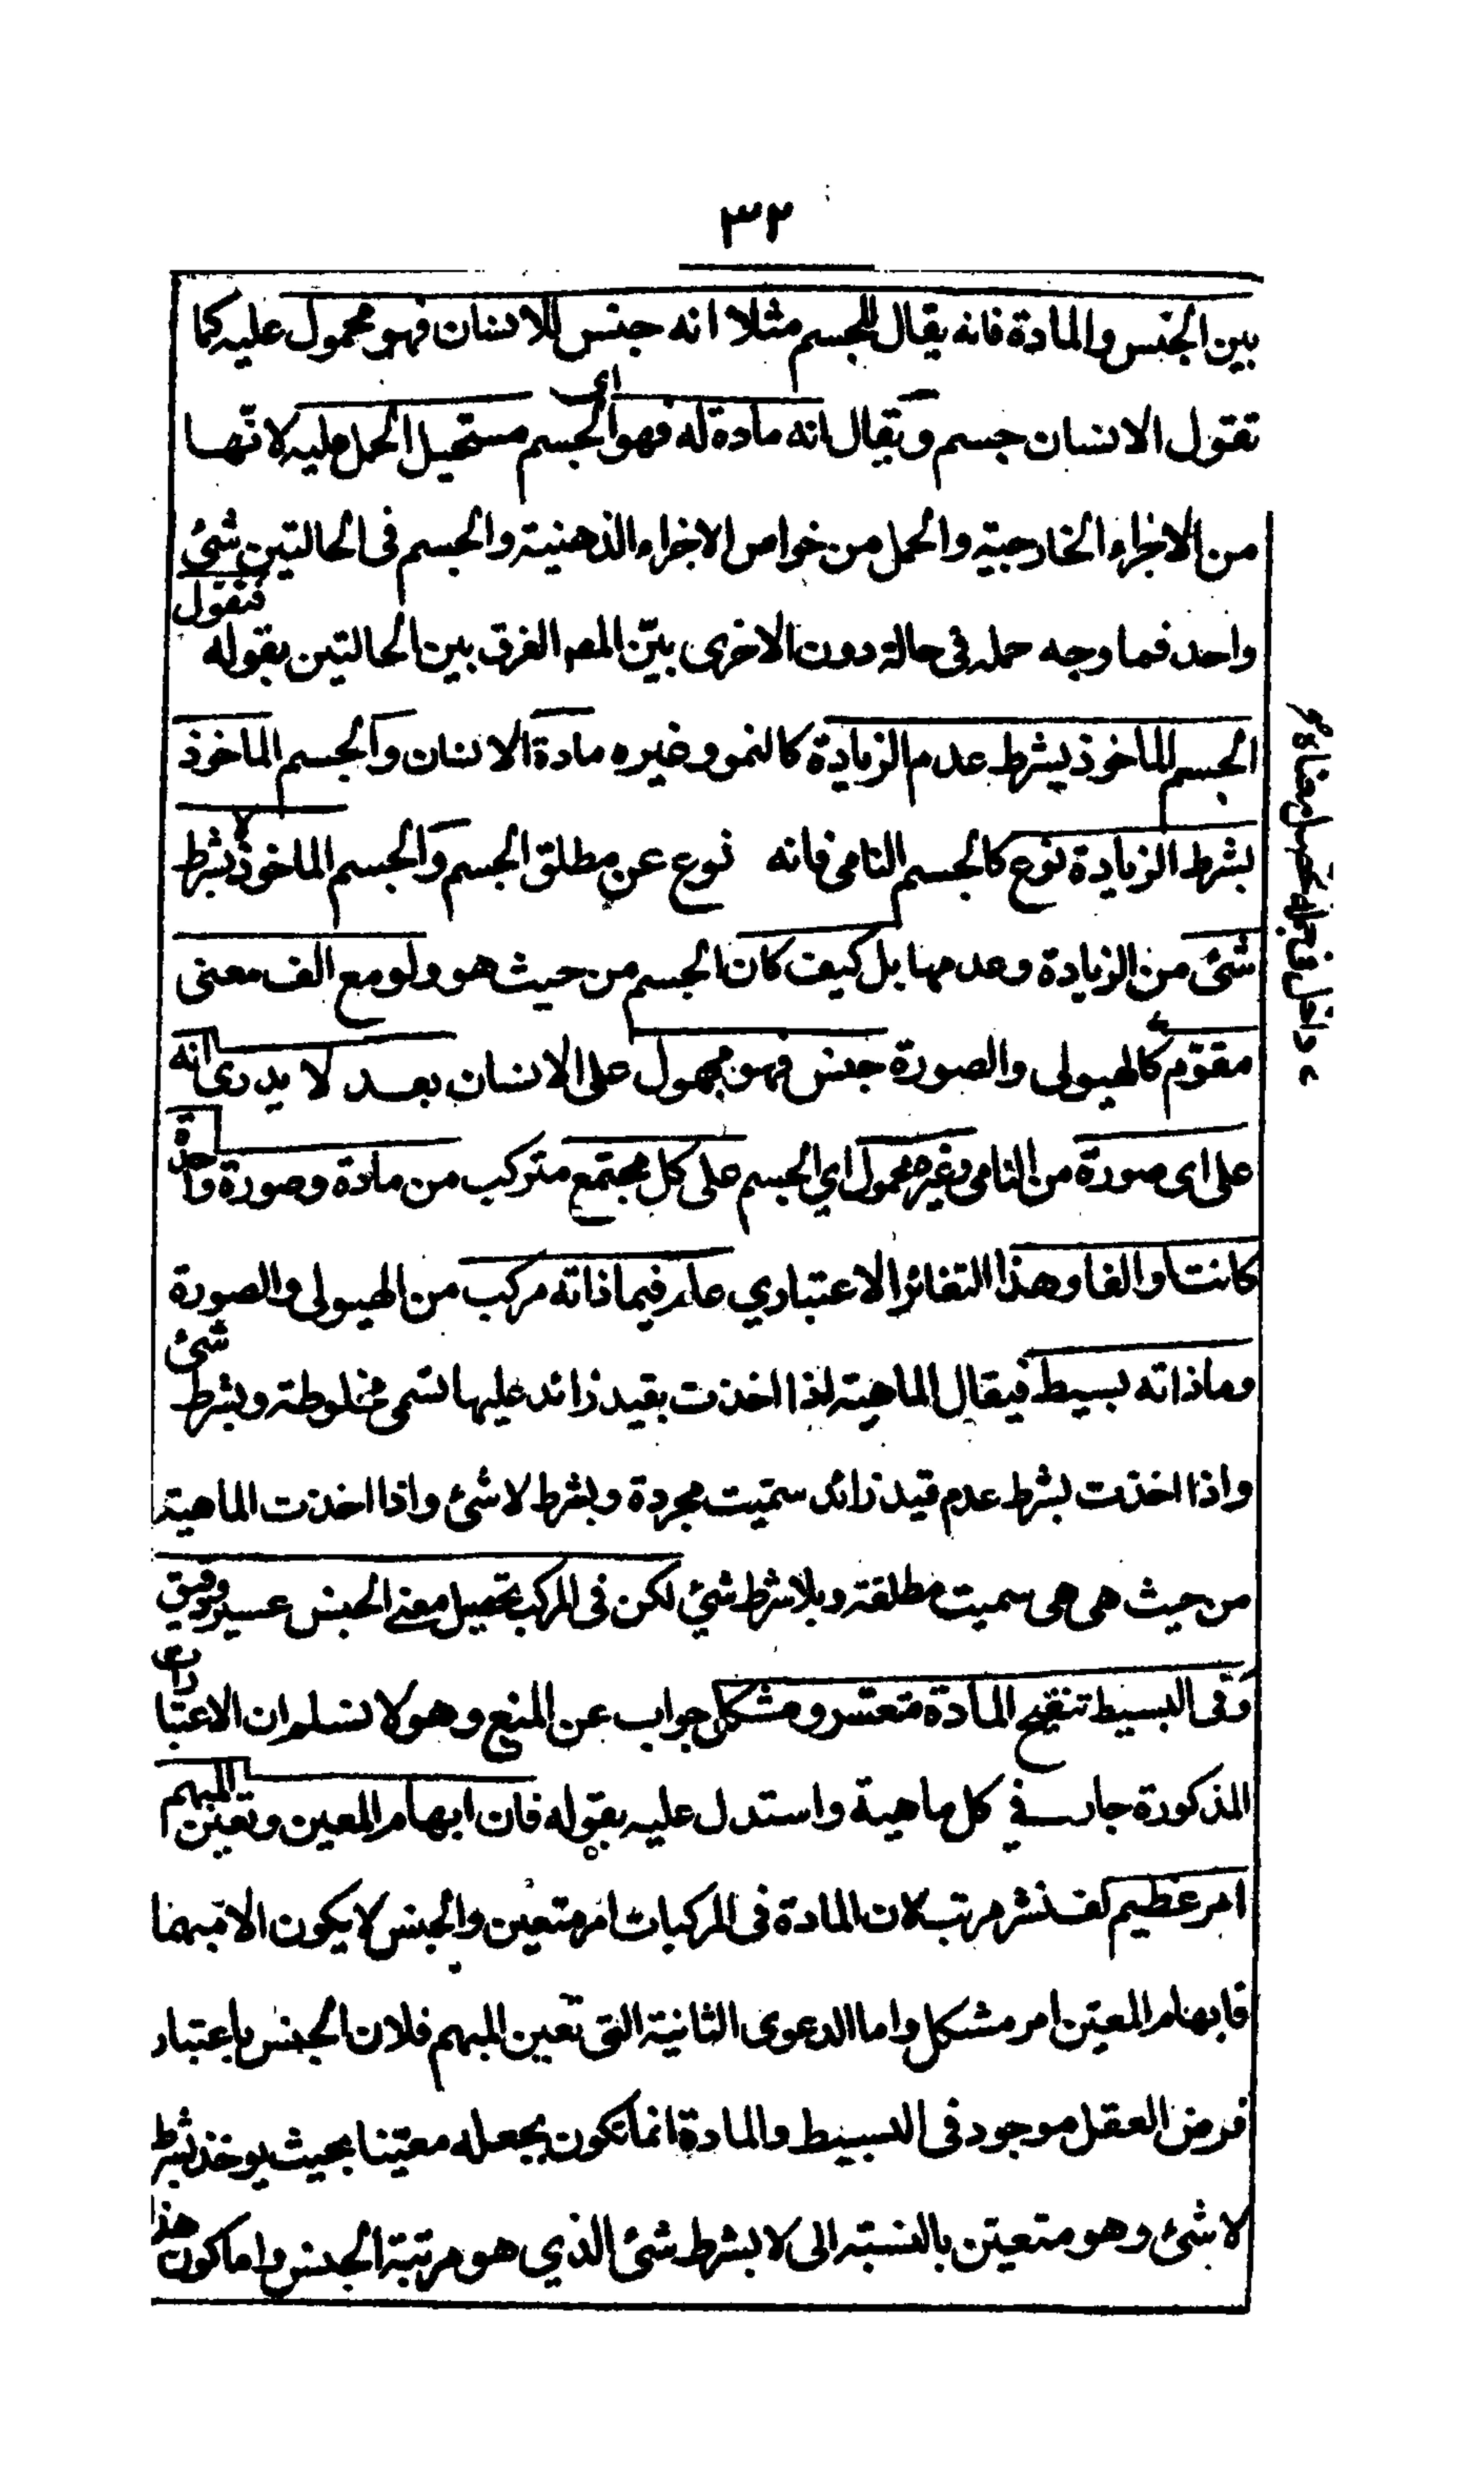 ٣٢
بين الجنس والمادة فانه يقال للجسم مثلا انه جنس للانسان فهو محمول عليه كما
تقول الانسان جسم ويقال انه مادة له فهو اى الجسم مستحيل الحمل عليه لانّها
من الاجزاء الخارجية والحمل من خواص الاجزاء الذهنية والجسم فى الحالتين شئ
واحد فما وجه حمله فى حالة دون الاخرى بيّن المصـ الفرق بين الحالتين بقوله فنقول
الجسم الماخوذ بشرط عدم الزيادة كالنمو وغيره مادة الانسان والجسم الماخوذ
بشرط الزيادة نوع كالجسم النامى فانه نوع عن مطلق الجسم والجسم الماخوذ لا بشرط
شئ من الزيادة وعدمها بل كيف كان الجسم من حيث هو ولو مع الف معنى
مقوّم كالهيولى والصورة جنس فهو مجهول على الانسان بعد لا يدرى انه
على اى صورة من النامى وغيره محمول اي الجسم على كل مجتمع متركب من مادة وصورة واحدة
كانت او الفا وهذا التغائر الاعتباري عام فيما ذاته مركب من الهيولى والصورة
وما ذاته بسيط فيقال الماهية اذا اخذت بقيد زائد عليها تسمى مخلوطة وبشرط شئ
واذا اخذت بشرط عدم قيد زائد سمّيت مجردة وبشرط لا شئ واذا اخذت الماهية
من حيث هى هى سميت مطلقة وبلا شرط شئ لكن فى المركب تحصيل معنے الجنس عسير ودقيق
وفى البسيط تنقيح المادة متعسّر ومشكل جواب عن المنع وهو لا نسلم ان الاعتبارات
المذكورة جار في كل ماهية واستدل عليه بقوله فان ابهام المعين وتعين المبهم
امر عظيم لف نشر مرتب لان المادة فى المركبات امر متعين والجنس لا يكون الا مبهما
فابهام المعيّن امر مشكل واما الدعوى الثانية التى تعين المبهم فلان الجنس باعتبار
فرض العقل موجود فى البسيط والمادة انما تكون بجعله معيّنا بحيث يوخذ بشرط
لا شئ وهو متعيّن بالنسبة الى لا بشرط شئ الذي هو مرتبة الجنس واما كون هذا